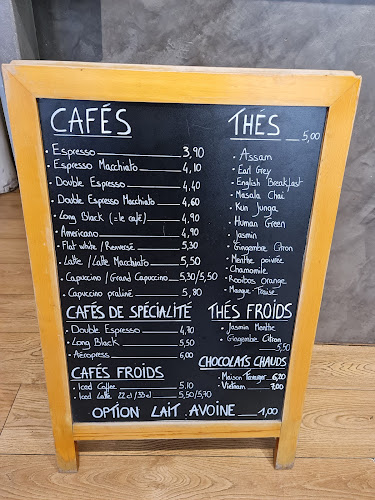 CAFÉS
Espresso 3,90
Espresso Macchiato 4,10
Double Espresso 4,40
Double Espresso Macchiato 4,60
Long Black (= le café) 4,90
Americano 4,90
Flat white / Renversé 5,30
Latte / Latte Macchiato 5,50
Capuccino / Grand Capuccino 5,30/5,50
Capuccino praliné 5,80
CAFÉS DE SPÉCIALITÉ
Double Espresso 4,70
Long Black 5,50
Aéropress 6,00
CAFÉS FROIDS
Iced Coffee 5,10
Iced Latte 22cl/33cl 5,50/5,70
THÉS 5,00
Assam
Earl Grey
English Breakfast
Masala Chai
Kun Junga
Human Green
Jasmin
Gingembre Citron
Menthe poivrée
Chamomile
Rooibos Orange
Mangue Fraise
THÉS FROIDS
Jasmin Menthe
Gingembre Citron
5,50
CHOCOLATS CHAUDS
Maison 6,20
Vietnam 7,00
OPTION LAIT AVOINE 1,00